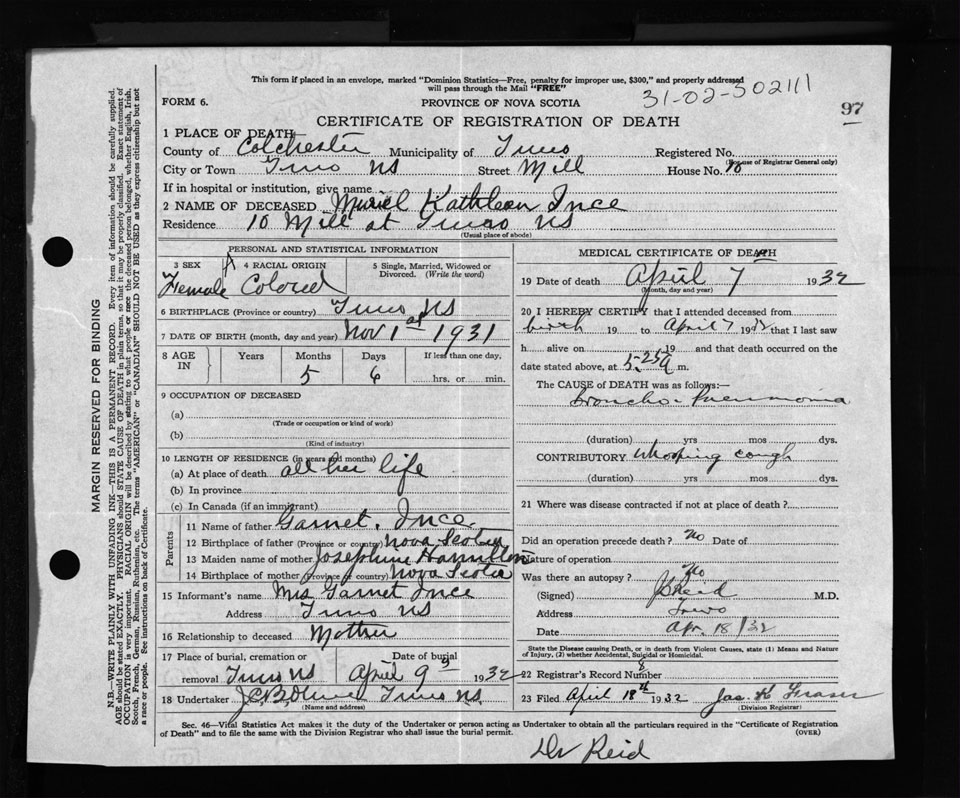 This form if placed in an envelope, marked "Dominion Statistics—Free, penalty for improper use, $300," and properly addressed
will pass through the Mail "FREE"
31-02-302111
FORM 6.
PROVINCE OF NOVA SCOTIA
97
CERTIFICATE OF REGISTRATION OF DEATH
1 PLACE OF DEATH
County of Colchester Municipality of Truro Registered No.
(For use of Registrar General only)
City or Town Truro NS Street Mill House No. 10
If in hospital or institution, give name
2 NAME OF DECEASED Muriel Kathleen Ince
Residence 10 Mill at Truro NS
(Usual place of abode)
PERSONAL AND STATISTICAL INFORMATION
3 SEX 4 RACIAL ORIGIN 5 Single, Married, Widowed or Divorced. (Write the word)
Female Colored
6 BIRTHPLACE (Province or country) Truro NS
7 DATE OF BIRTH (month, day and year) Nov 1st 1931
8 AGE IN Years Months Days If less than one day,
5 6 hrs. or min.
9 OCCUPATION OF DECEASED
(a)
(Trade or occupation or kind of work)
(b)
(Kind of industry)
10 LENGTH OF RESIDENCE (in years and months)
(a) At place of death all her life
(b) In province
(c) In Canada (if an immigrant)
Parents
11 Name of father Garnet. Ince
12 Birthplace of father (Province or country) Nova Scotia
13 Maiden name of mother Josephine Hamilton
14 Birthplace of mother (Province or country) Nova Scotia
15 Informant's name Mrs Garnet Ince
Address Truro NS
16 Relationship to deceased Mother
17 Place of burial, cremation or removal Truro NS Date of burial April 9 1932
18 Undertaker Truro NS.
(Name and address)
MEDICAL CERTIFICATE OF DEATH
19 Date of death April 7 1932
(Month, day and year)
20 I HEREBY CERTIFY that I attended deceased from
birth 19 to April 7 1932 that I last saw
h alive on 19 and that death occurred on the
date stated above, at 5-25 a m.
The CAUSE OF DEATH was as follows:—
Broncho-Pneumonia
(duration) yrs mos dys.
CONTRIBUTORY Whooping cough
(duration) yrs mos dys.
21 Where was disease contracted if not at place of death?
Did an operation precede death? no Date of
Nature of operation
Was there an autopsy? No
(Signed) Reid M.D.
Address Truro
Date Apr. 18/32
State the Disease causing Death, or in death from Violent Causes, state (1) Means and Nature of Injury, (2) whether Accidental, Suicidal or Homicidal.
22 Registrar's Record Number 8
23 Filed April 18th 1932 Jas. K Fraser
(Division Registrar)
Sec. 46—Vital Statistics Act makes it the duty of the Undertaker or person acting as Undertaker to obtain all the particulars required in the "Certificate of Registration
of Death" and to file the same with the Division Registrar who shall issue the burial permit.
(OVER)
Dr Reid
MARGIN RESERVED FOR BINDING
N.B.—WRITE PLAINLY WITH UNFADING INK—THIS IS A PERMANENT RECORD. Every item of information should be carefully supplied.
AGE should be stated EXACTLY. PHYSICIANS should STATE CAUSE OF DEATH in plain terms, so that it may be properly classified. Exact statement of
OCCUPATION is very important. RACIAL ORIGIN will be described by stating to what people or race the deceased person belonged, whether English, Irish,
Scotch, French, German, Russian, Ruthenian, etc. The terms "AMERICAN" or "CANADIAN" SHOULD NOT BE USED as they express citizenship but not
a race or people. See instructions on back of Certificate.